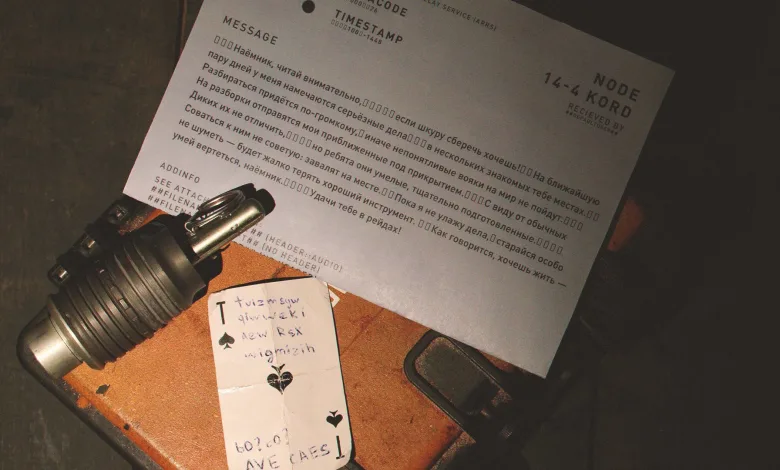 TIMESTAMP
MESSAGE
NODE
14-4 KORD
RECIEVED BY
Наёмник, читай внимательно, если шкуру сберечь хочешь! На ближайшую
пару дней у меня намечаются серьёзные дела в нескольких знакомых тебе местах.
Разбираться придётся по-громкому, иначе непонятливые вояки на мир не пойдут.
На разборки отправятся мои приближенные под прикрытием. С виду от обычных
Диких их не отличить, но ребята они умелые, тщательно подготовленные.
Соваться к ним не советую: завалят на месте. Пока я не улажу дела, старайся особо
не шуметь — будет жалко терять хороший инструмент. Как говорится, хочешь жить —
умей вертеться, наёмник. Удачи тебе в рейдах!
ADDINFO
SEE ATTACH
##FILENA
##FILENA
## (HEADER::AUDIO)
## (NO HEADER)
T
tvizmsyw
AVE CAES
T